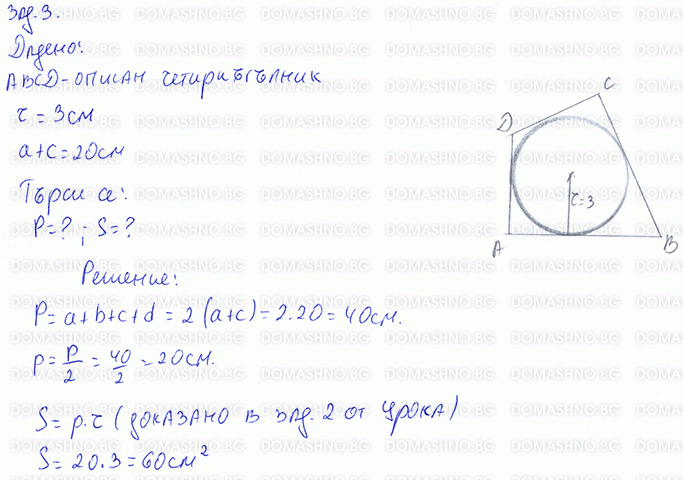 Зад. 3.
Дадено:
ABCD - описан четириъгълник
r = 3 см
a+c = 20 см
Търси се:
P = ? ; S = ?
Решение:
P = a+b+c+d = 2 (a+c) = 2.20 = 40 см.
p = P/2 = 40/2 = 20 см.
S = p.r (доказано в зад. 2 от урока)
S = 20.3 = 60 см²
C
D
r=3
A
B
DOMASHNO.BG